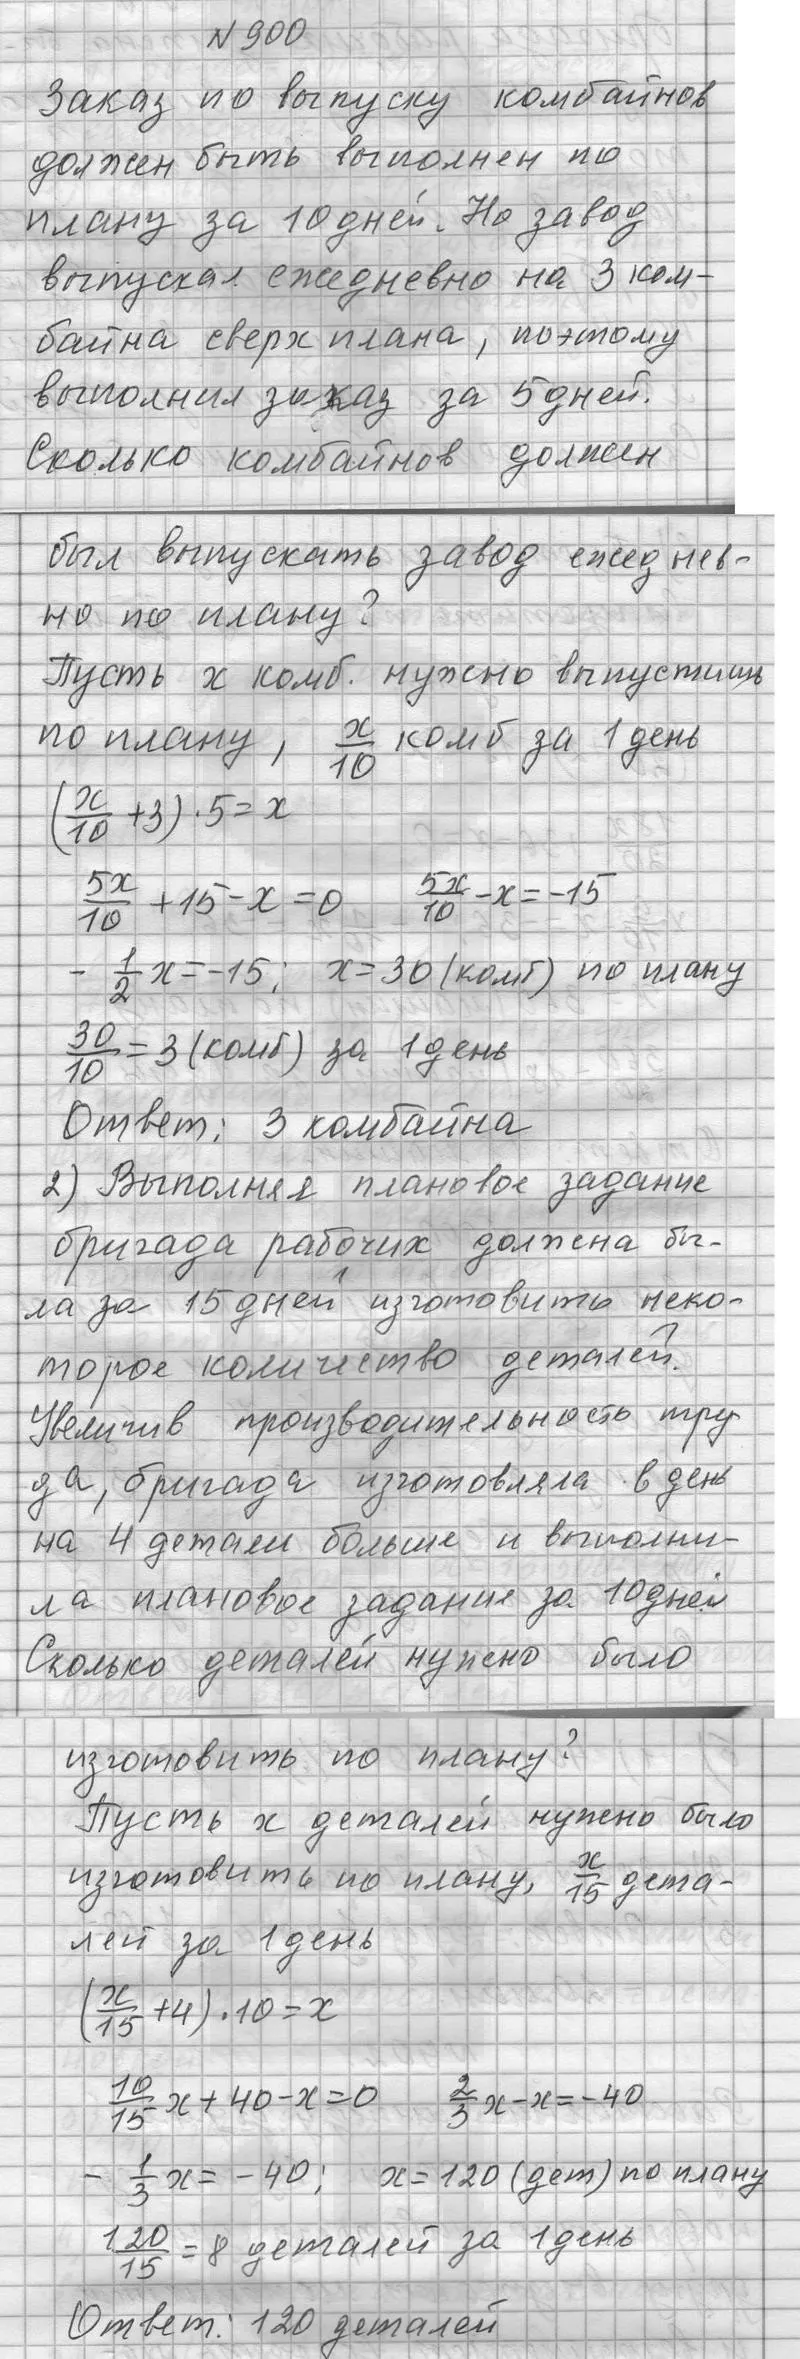 N 900
Заказ по выпуску комбайнов
должен быть выполнен по
плану за 10 дней. Но завод
выпускал ежедневно на 3 ком-
байна сверх плана, поэтому
выполнил заказ за 5 дней.
Сколько комбайнов должен
был выпускать завод ежеднев-
но по плану?
Пусть x комб. нужно выпустить
по плану, x/10 комб за 1 день
(x/10 + 3) · 5 = x
5x/10 + 15 - x = 0 5x/10 - x = -15
- 1/2 x = -15; x = 30 (комб) по плану
30/10 = 3 (комб) за 1 день
Ответ: 3 комбайна
2) Выполняя плановое задание
бригада рабочих должна бы-
ла за 15 дней изготовить неко-
торое количество деталей.
Увеличив производительность тру-
да, бригада изготовляла в день
на 4 детали больше и выполни-
ла плановое задание за 10 дней
Сколько деталей нужно было
изготовить по плану?
Пусть x деталей нужно было
изготовить по плану, x/15 дета-
лей за 1 день
(x/15 + 4) · 10 = x
10/15 x + 40 - x = 0 2/3 x - x = -40
- 1/3 x = -40; x = 120 (дет) по плану
120/15 = 8 деталей за 1 день
Ответ: 120 деталей